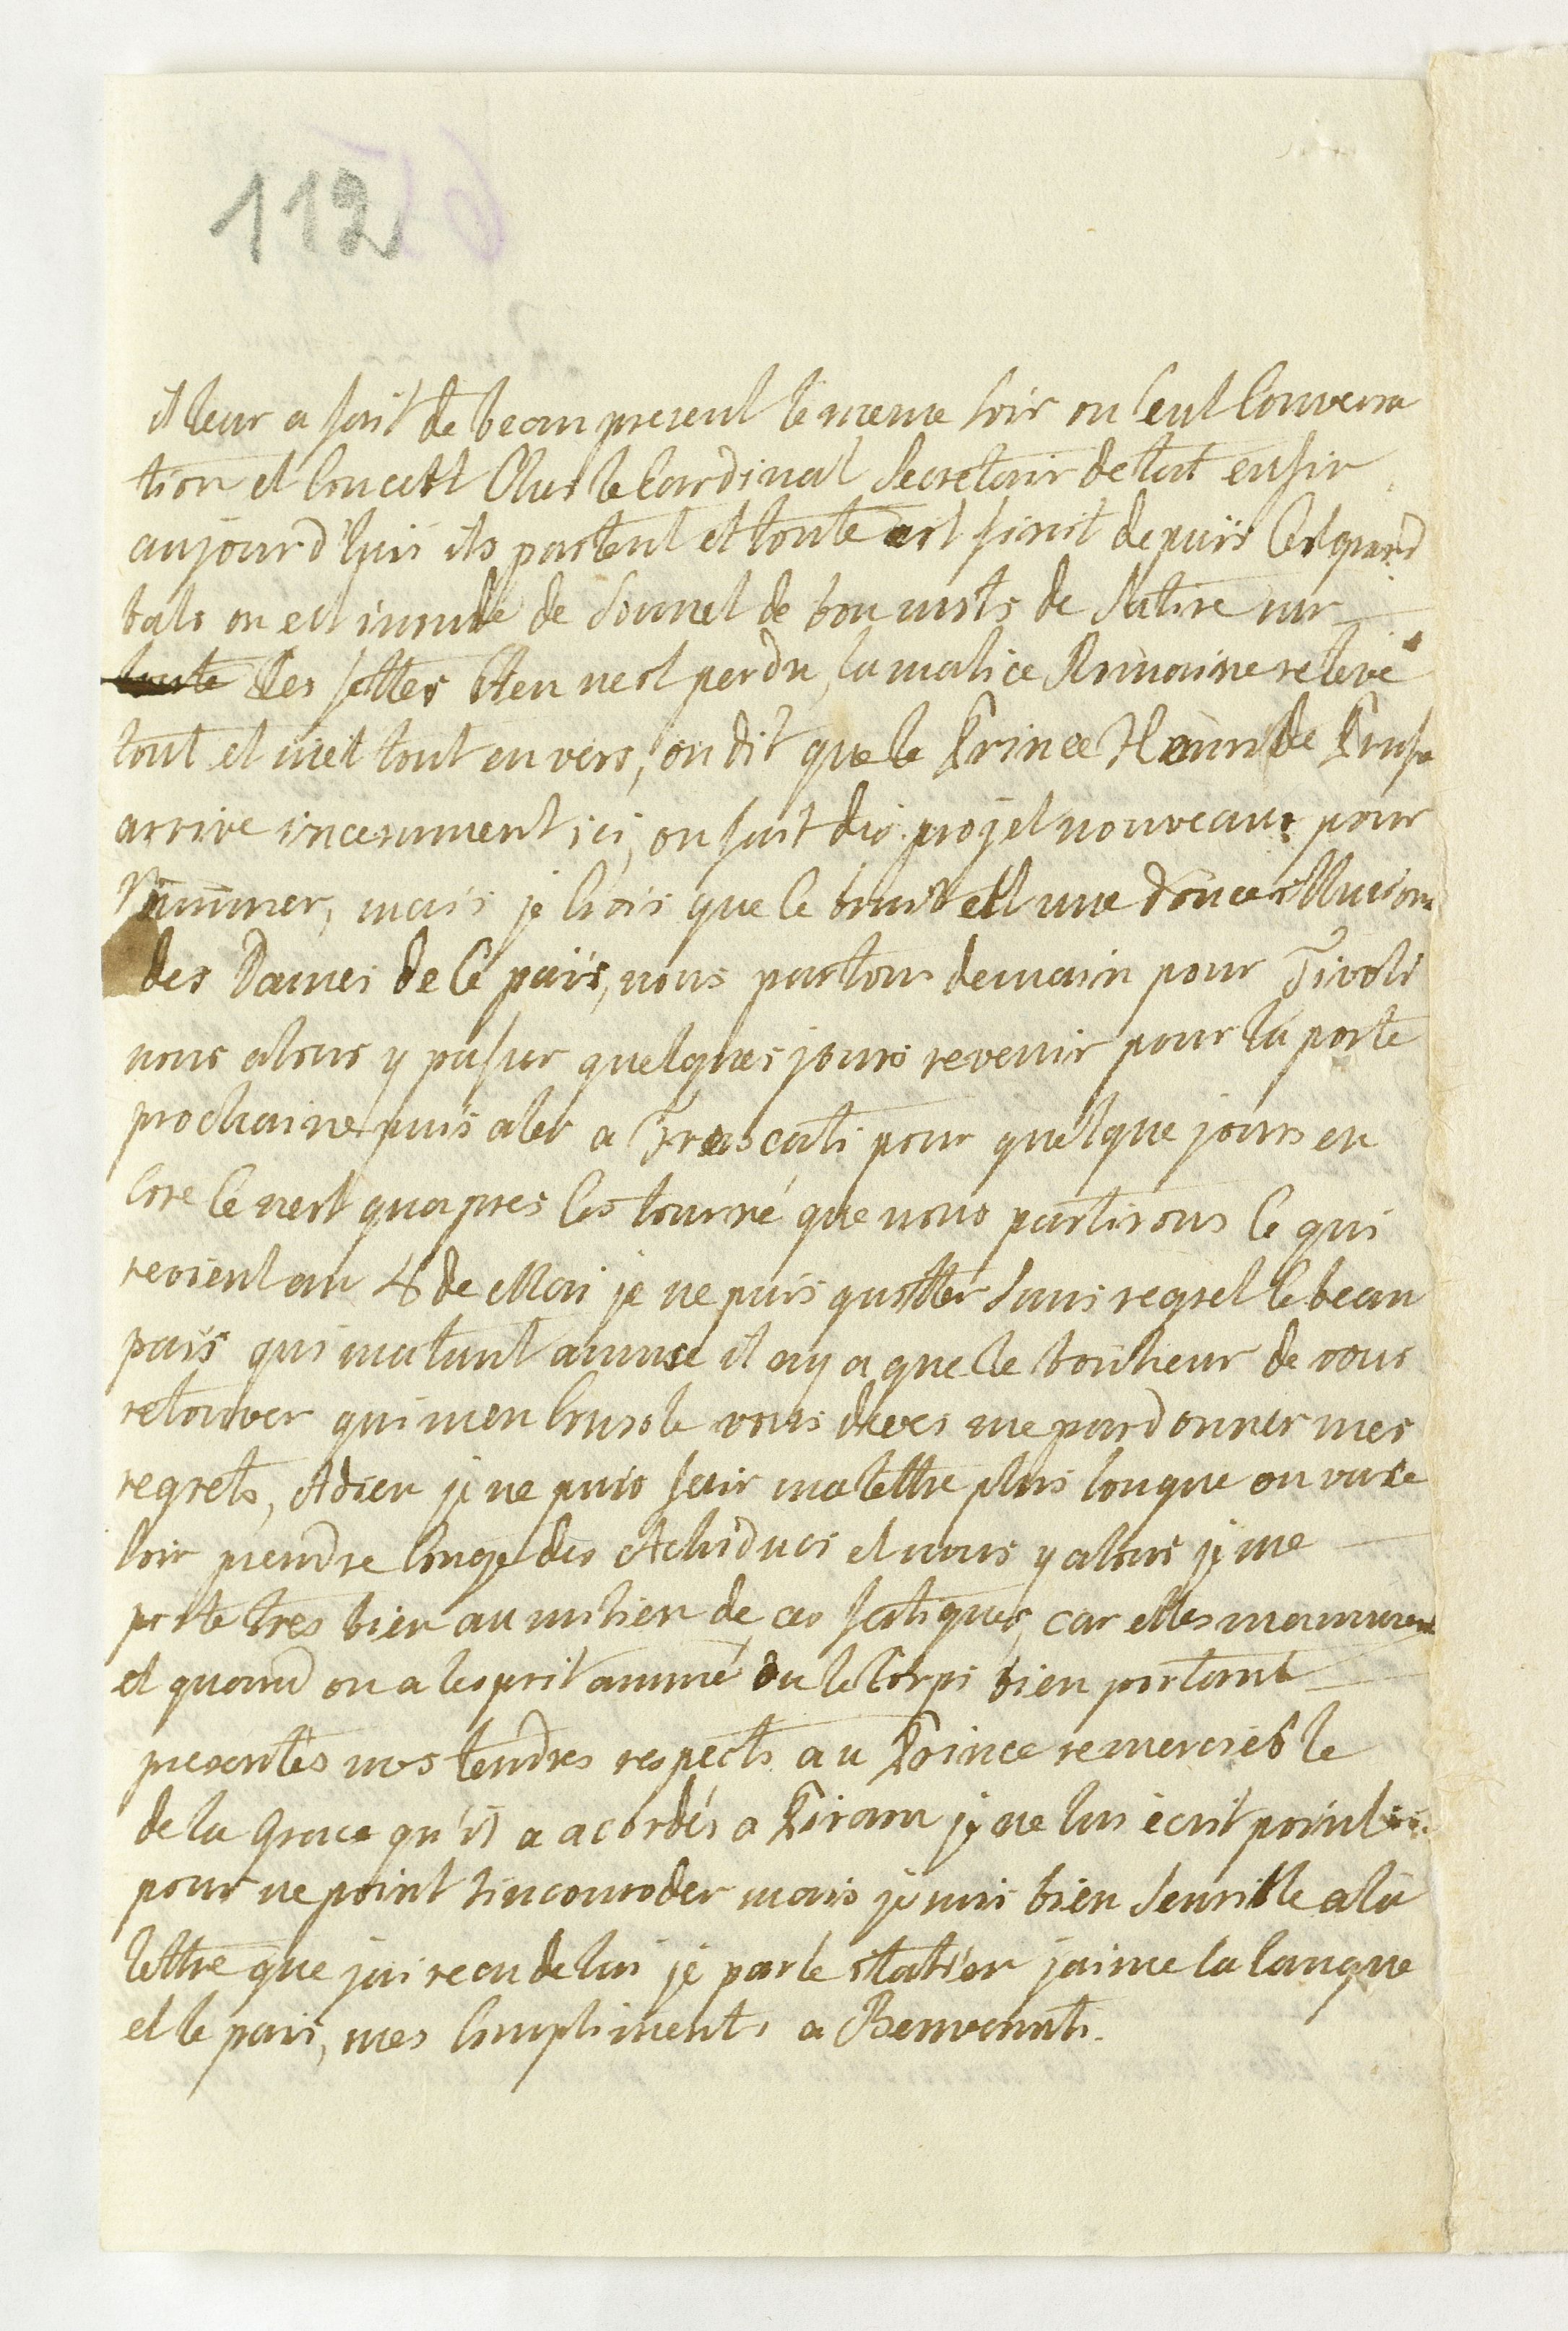 112
il leur a fait de beau present le meme soir on leut Conversa
tion et Concett Ches le Cardinal Secretair detat enfin
aujourd'hui ils partent et toute est finit depuis Ces grand
bals on est inondé de Sonnet de bon mots de Satire sur
toute Ces fettes Rien nest perdu, la malice Romaine releve
tout et met tout en vers, on dit que le Prince Henri de Prusse
arrive incesament ici, on fait dis projet nouveaux pour
lammuser, mais je Crois que ce bruit est une douce illusion
des Dames de Ce païs, nous partons demain pour Tivoli
nous alons y passer quelques jours revenir pour la poste
prochaine puis aler a Frascati pour quelque jours en
Core Ce nest quapres Ces tourné que nous partirons Ce qui
revient au 4 de Mai je ne puis quitter sans regret Ce beau
païs qui matant amusé il ny a que le bonheur de vous
retouver qui men Console vous devés me pardonner mes
regrets, Adieu je ne puis fair ma lettre plus longue on va ce
soir prendre Congé des Achiducs et nous y alons je me
porte tres bien au milieu de ces fatigues, car elles mamusent
et quand on a lesprit amusé on a le Corps bien portant
presentés mes tendres respects au Prince remerciés le
de la Grace qu'il a acordés a Piram je ne lui ecrit point
pour ne point lincomoder mais je suis bien Sensible a la
lettre que jai recu de lui je parle italien jaime la langue
et le pais, mes Compliments a Benvenuti.